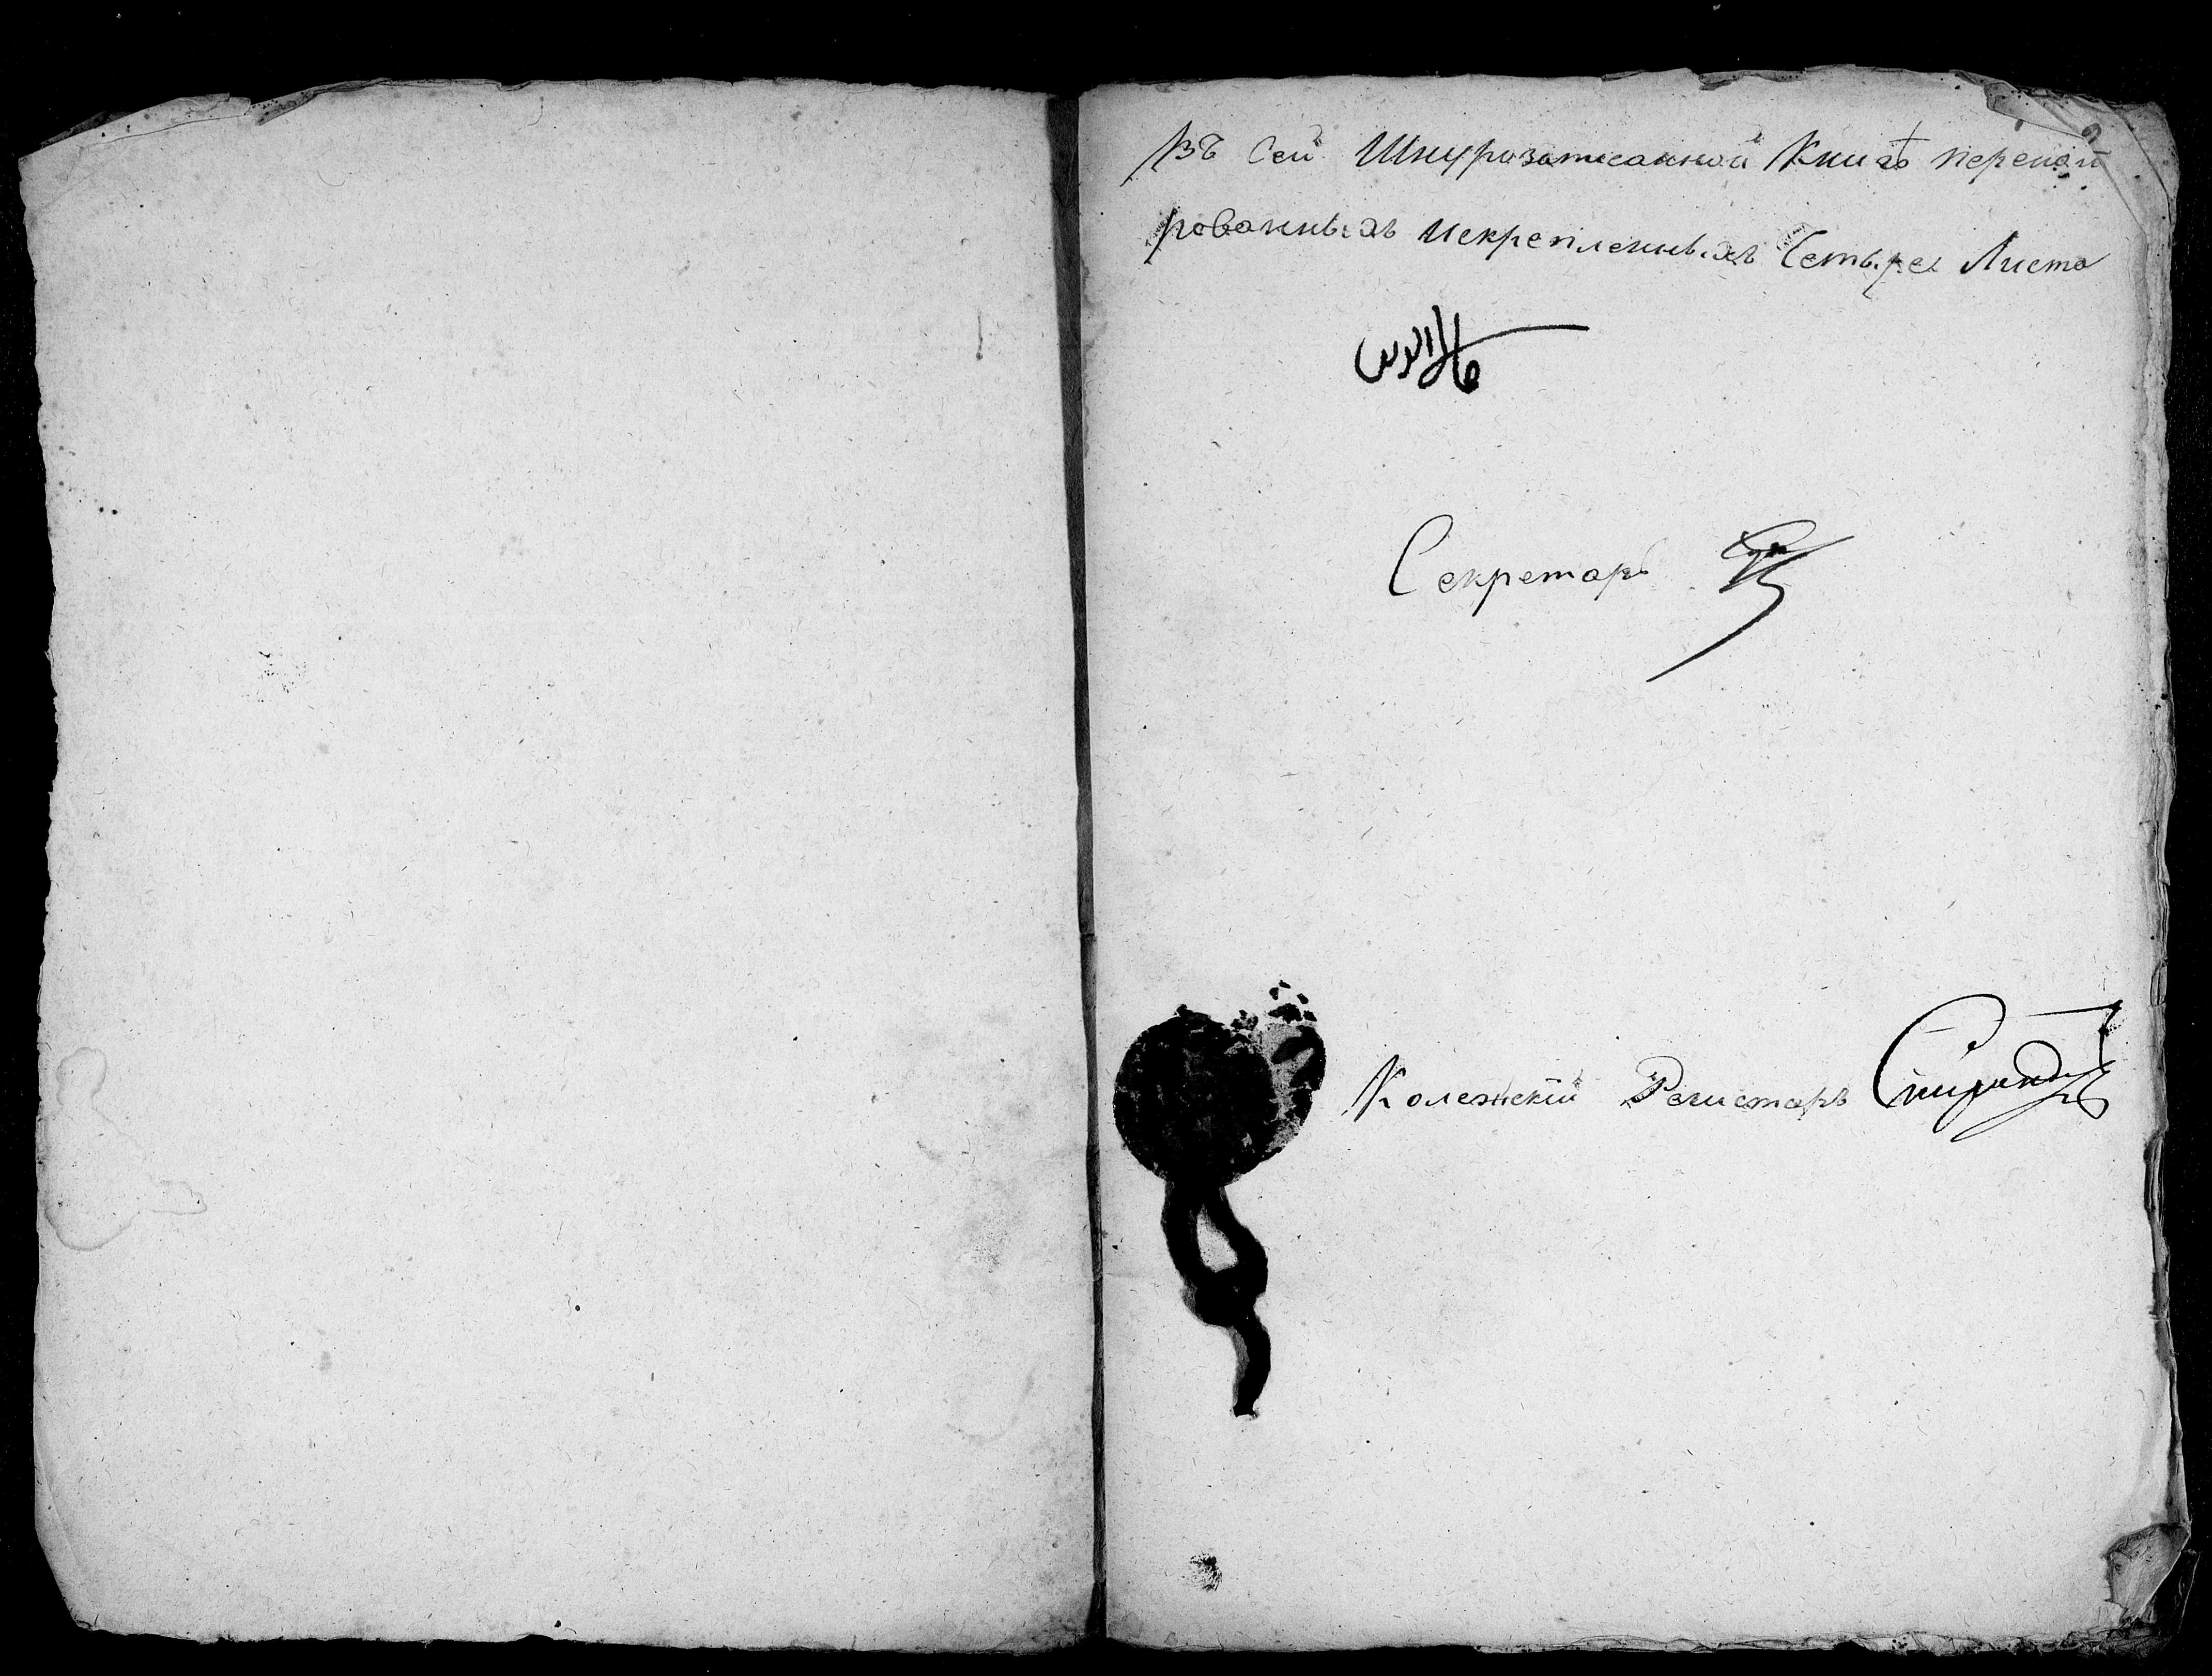 Въ сей Шнурозаписанной Книгѣ перено
рованныхъ искрепленныхъ Четыре Листа
Секретарь
Колежскій Регистаръ Спиридо